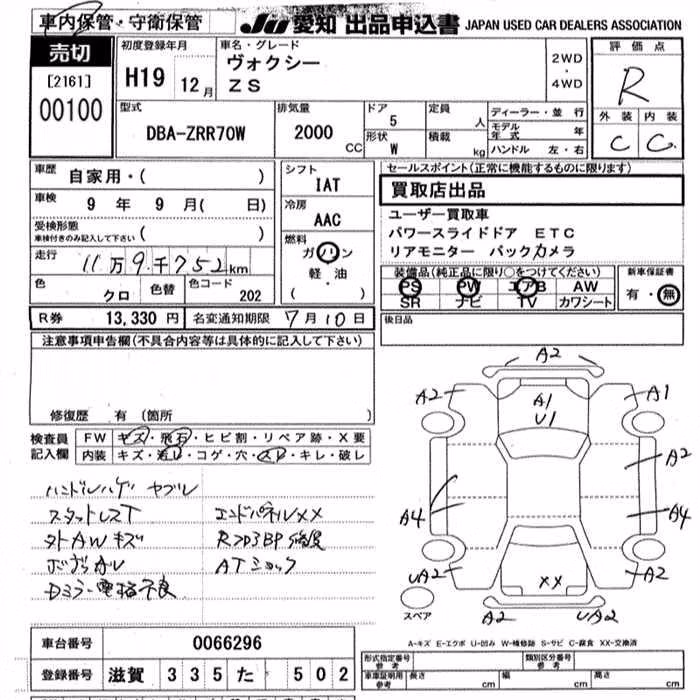 車内保管・守衛保管
JU 愛知 出品申込書 JAPAN USED CAR DEALERS ASSOCIATION
売切
[2161]
00100
初度登録年月
H19 12月
車名・グレード
ヴォクシー
ZS
2WD
・
4WD
評価点
R
外装 内装
C C
型式
DBA-ZRR70W
排気量
2000 CC
ドア
5
形状
W
定員 人
積載 kg
ディーラー・並行
モデル年式 年
ハンドル 左・右
車歴 自家用・( )
車検 9年 9月( 日)
受検形態
車検付きのみ記入して下さい ( )
走行 11万9千752km
色 クロ 色替 色コード 202
シフト
IAT
冷房
AAC
燃料
ガソリン
軽・油
( )
R券 13,330円 名変通知期限 7月10日
セールスポイント(正常に機能するものに限ります)
買取店出品
ユーザー買取車
パワースライドドア ETC
リアモニター バックカメラ
装備品(純正品に限り○をつけてください)
PS PW エアB AW
SR ナビ TV カワシート
新車保証書
有・無
後日品
注意事項申告欄(不具合内容等は具体的に記入して下さい)
修復歴 有(箇所 )
検査員記入欄
FW キズ・飛石・ヒビ割・リペア跡・X要
内装 キズ・汚レ・コゲ・穴・スレ・キレ・破レ
ハンドルハゲ ヤブレ
スタットレスT エンドパネルXX
外AWキズ
ATショック
Dミラー電格不良
A2
A2 A1 A1
U1
A2
A4 A4
UA2 XX A2
スペア
A2 UA2
A-キズ E-エクボ U-凹み W-補修跡 S-サビ C-腐食 XX-交換済
車台番号 0066296
登録番号 滋賀 335 た 502
形式指定番号
参考
類別区分番号
参考
車庫証明用
参考
長さ cm 幅 cm 高さ cm